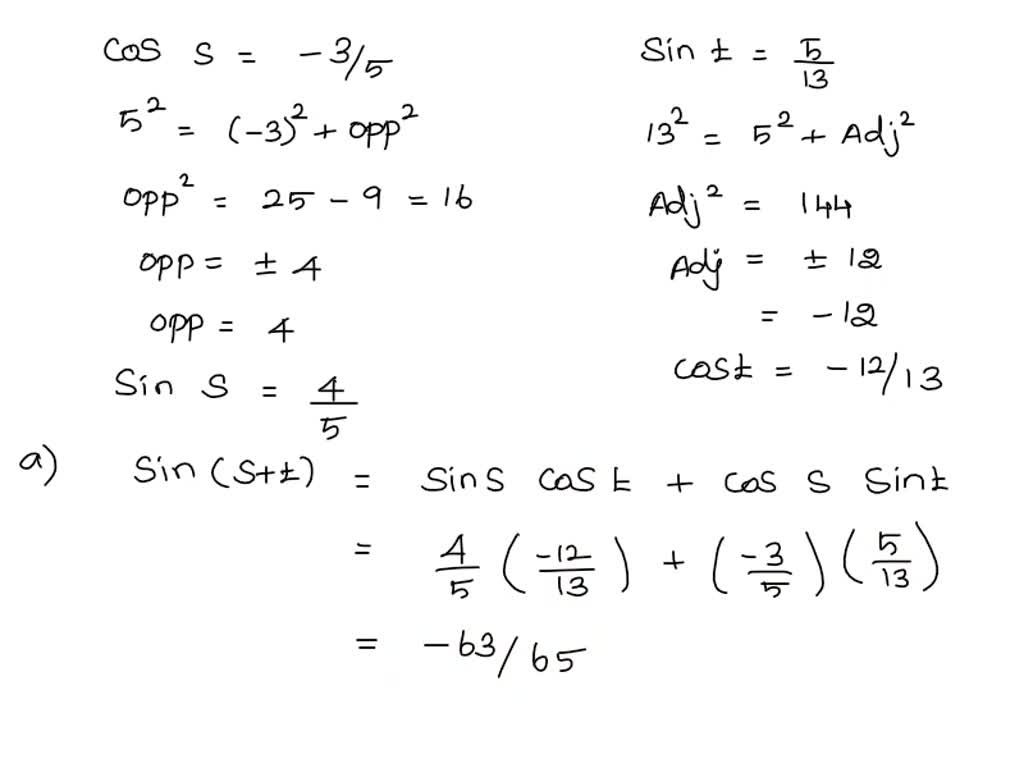 cos s = -3/5
5² = (-3)² + opp²
opp² = 25 - 9 = 16
opp = ± 4
opp = 4
Sin S = 4/5
Sin t = 5/13
13² = 5² + Adj²
Adj² = 144
Adj = ± 12
= -12
cost = -12/13
a) Sin (S+t) = Sin S cos t + cos s Sin t
= 4/5 (-12/13) + (-3/5) (5/13)
= -63/65